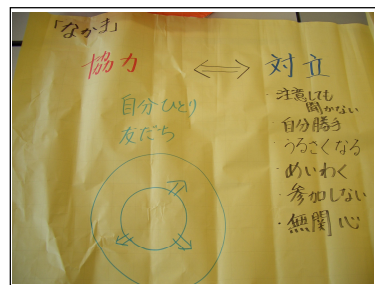 「なかま」
協力 ⟷ 対立
自分ひとり
友だち
・注意しても
聞かない
・自分勝手
・うるさくなる
・めいわく
・参加しない
・無関心